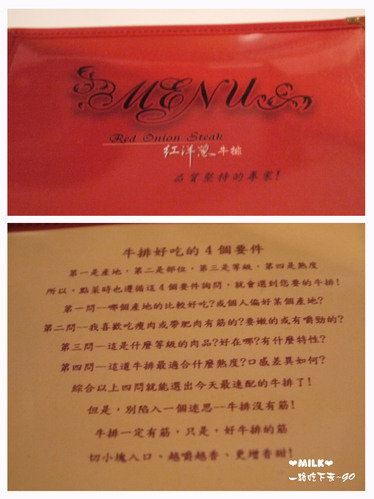 MENU
Red Onion Steak
紅洋蔥牛排
品質堅持的專家!
牛排好吃的4個要件
第一是產地,第二是部位,第三是等級,第四是熟度
所以,點菜時也遵循這4個要件詢問,就會選到您要的牛排!
第一問--哪個產地的比較好吃?或個人偏好某個產地?
第二問--我喜歡吃瘦肉或帶肥肉有筋的?要嫩的或有嚼勁的?
第三問--這是什麼等級的肉品?好在哪?有什麼特性?
第四問--這道牛排最適合什麼熟度?口感差異如何?
綜合以上四問就能選出今天最速配的牛排了!
但是,別陷入一個迷思--牛排沒有筋!
牛排一定有筋,只是,好牛排的筋
切小塊入口、越嚼越香、更增香甜!
❤MILK❤
一路吃下去~GO